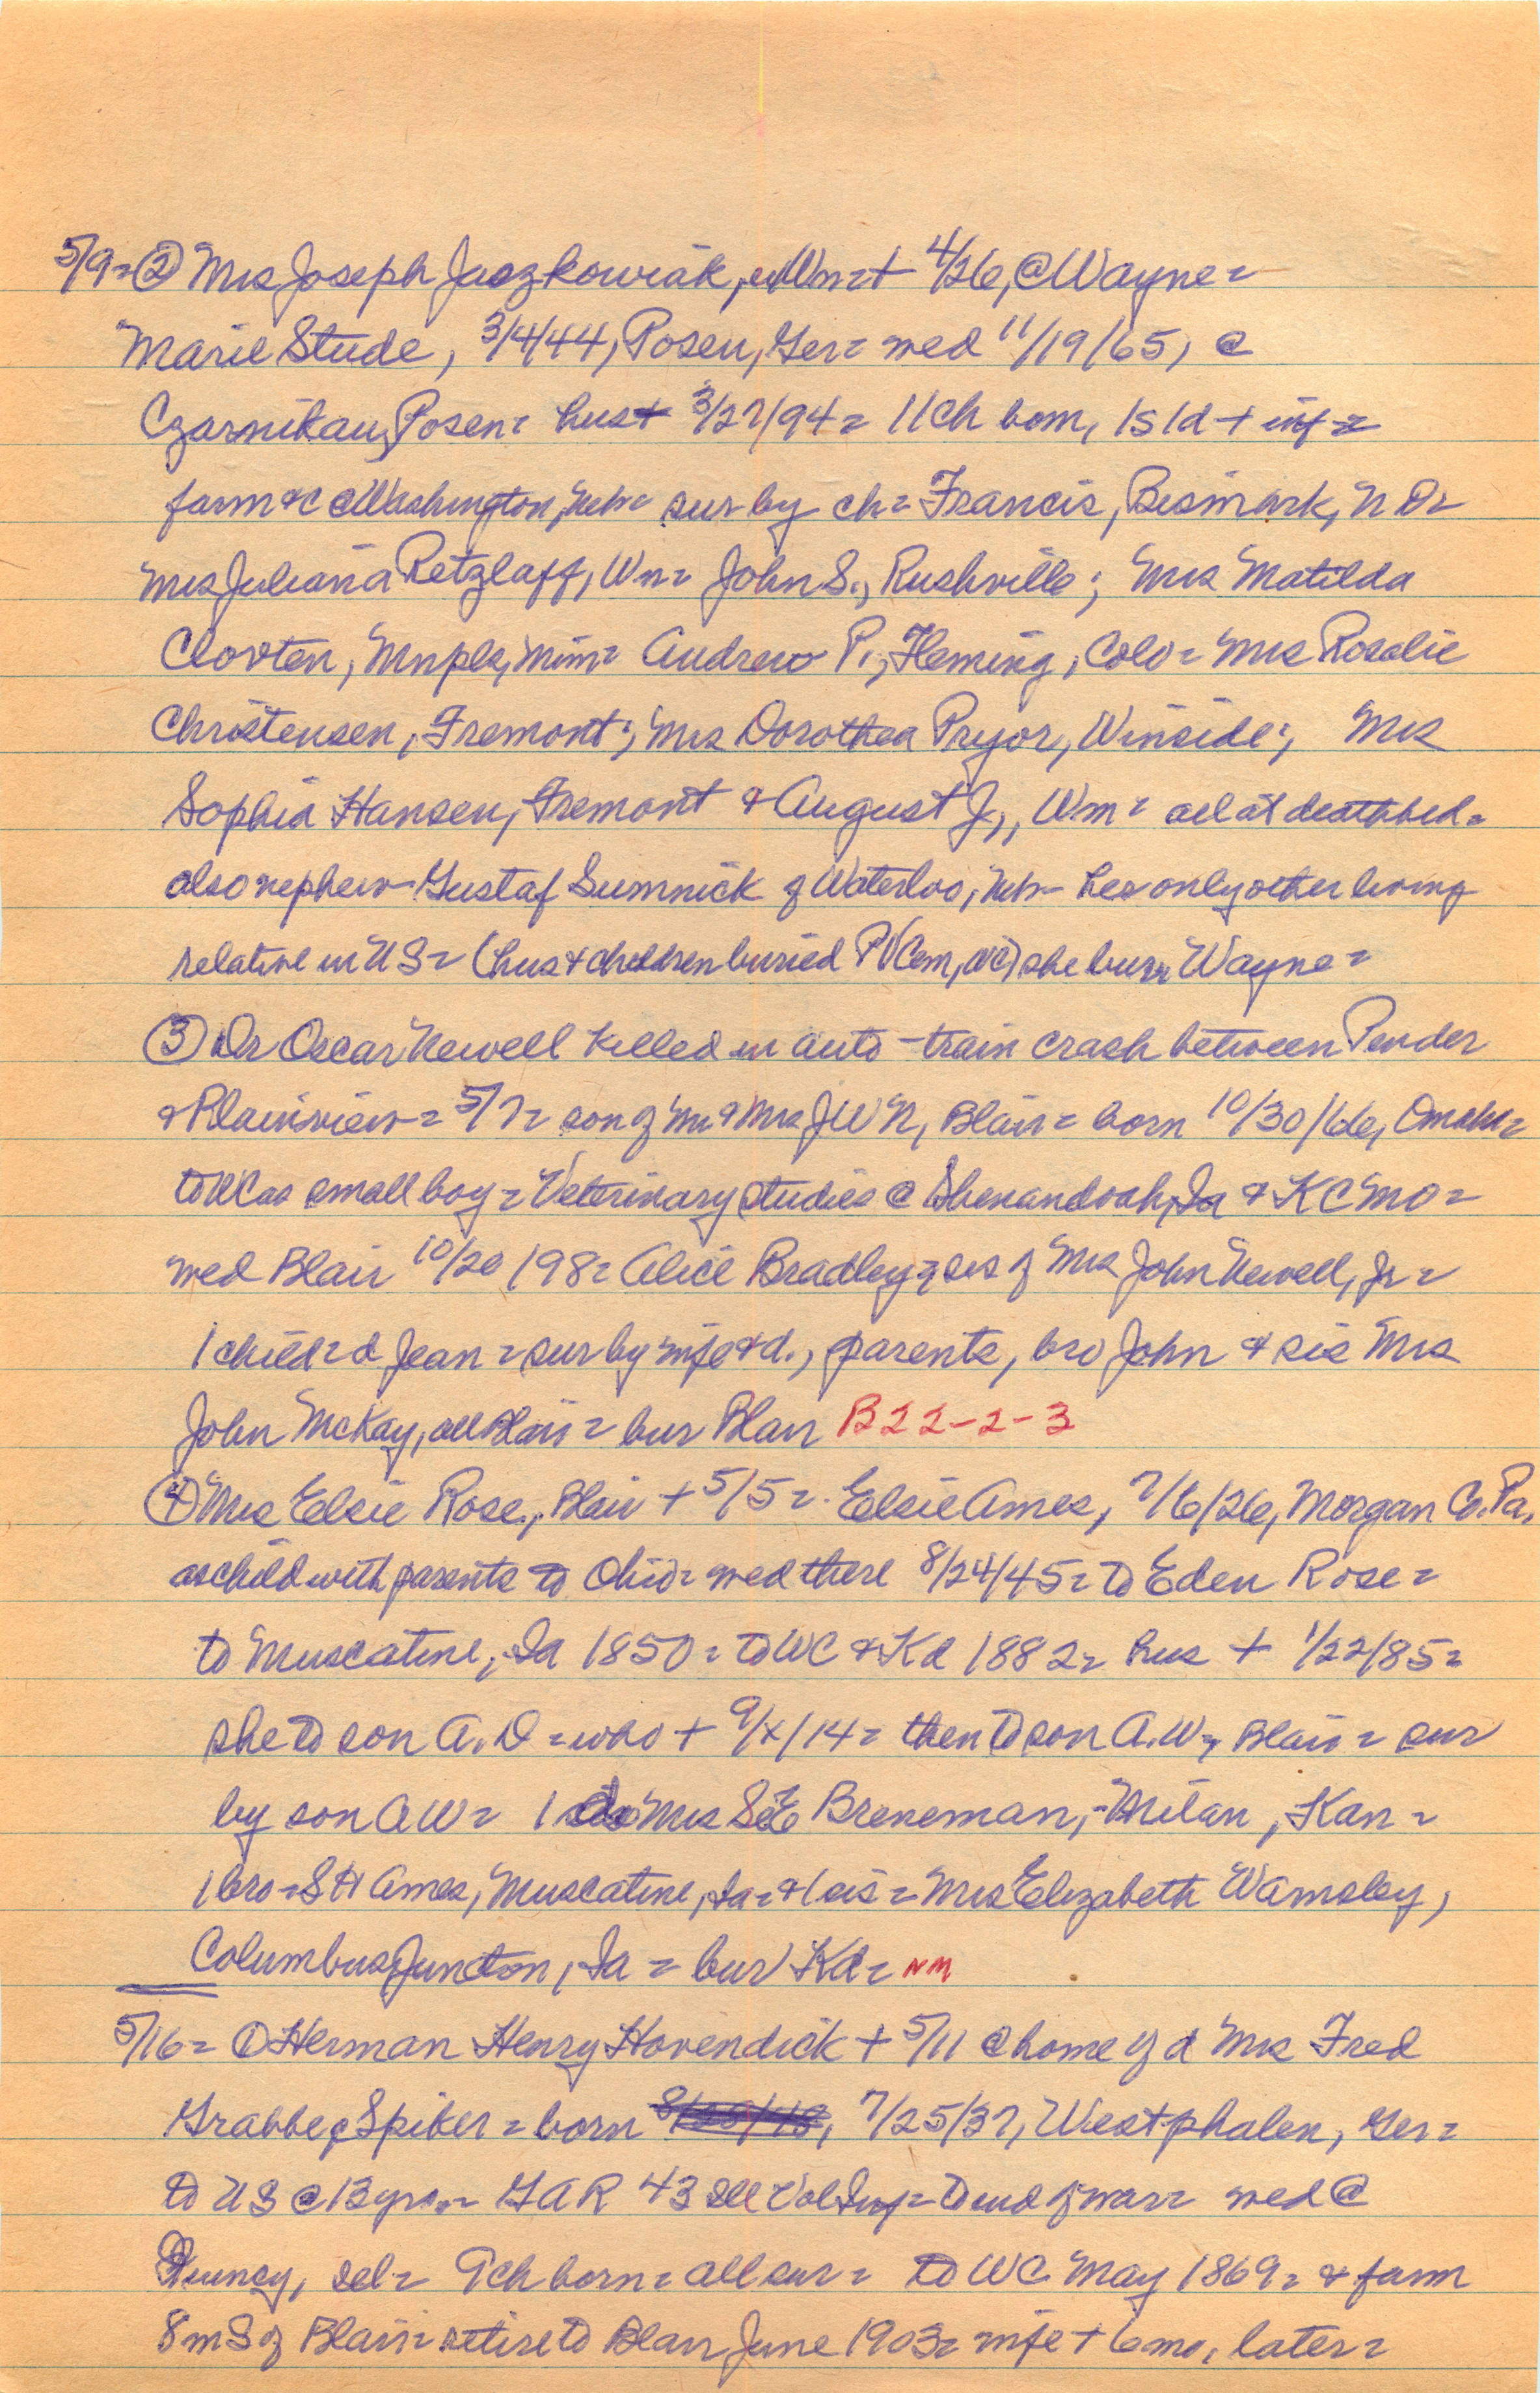 5/9= ② Mrs Joseph Jaszkowiak, Wm = + 4/26, @ Wayne =
Marie Stude, 3/4/44, Posen, Ger = wed 11/19/65, @
Czarnikau, Posen = hus + 3/27/94 = 11 ch born, 1s 1d + inf =
farm WC @ Washington, Neb = sur by ch = Francis, Bismark, N D =
Mrs Juliana Retzlaff, Wn = John S., Rushville; Mrs Matilda
Clooten, Mnpls, Minn = Andrew P., Fleming, Colo = Mrs Rosalie
Christensen, Fremont; Mrs Dorothea Pryor, Winside; Mrs
Sophia Hansen, Fremont & August J., Wm = all at deathbed =
also nephew Gustaf Sumnick of Waterloo, Neb - her only other living
relative in US = (hus & children buried PV Cem, WC) she bur Wayne =
③ Dr Oscar Newell killed in auto-train crash between Pender
& Plainview = 5/7 = son of Mr & Mrs J W N, Blair = born 10/30/66, Omaha =
to WC as small boy = Veterinary studies @ Shenandoah, Ia & K C Mo =
wed Blair 10/20/98 = Alice Bradley = sis of Mrs John Newell, Jr =
1 child = d Jean = sur by wife & d., parents, bro John & sis Mrs
John McKay, all Blair = bur Blair B22-2-3
④ Mrs Elsie Rose, Blair + 5/5 = Elsie Ames, 7/6/26, Morgan Co. Pa.
as child with parents to Ohio = wed there 8/24/45 = to Eden Rose =
to Muscatine, Ia 1850 = to WC & Kd 1882 = hus + 1/22/85 =
she to son A. D = who + 9/x/14 = then to son A.W., Blair = sur
by son A W = 1 Mrs S E Breneman, Milan, Kan =
1 bro = S H Ames, Muscatine, Ia = & 1 sis = Mrs Elizabeth Wamsley,
Columbus Junction, Ia = bur Kd = NM
5/16= ① Herman Henry Hovendick + 5/11 @ home of d Mrs Fred
Grabbe, Spiker = born 7/25/37, Westphalen, Ger =
to US @ 13 yrs. = GAR 43 Ill Vol Inf = to end of war = wed @
Quincy, Ill = 9 ch born = all sur = to WC May 1869 = & farm
8 m S of Blair = retire to Blair June 1903 = wife + 6 mo, later =